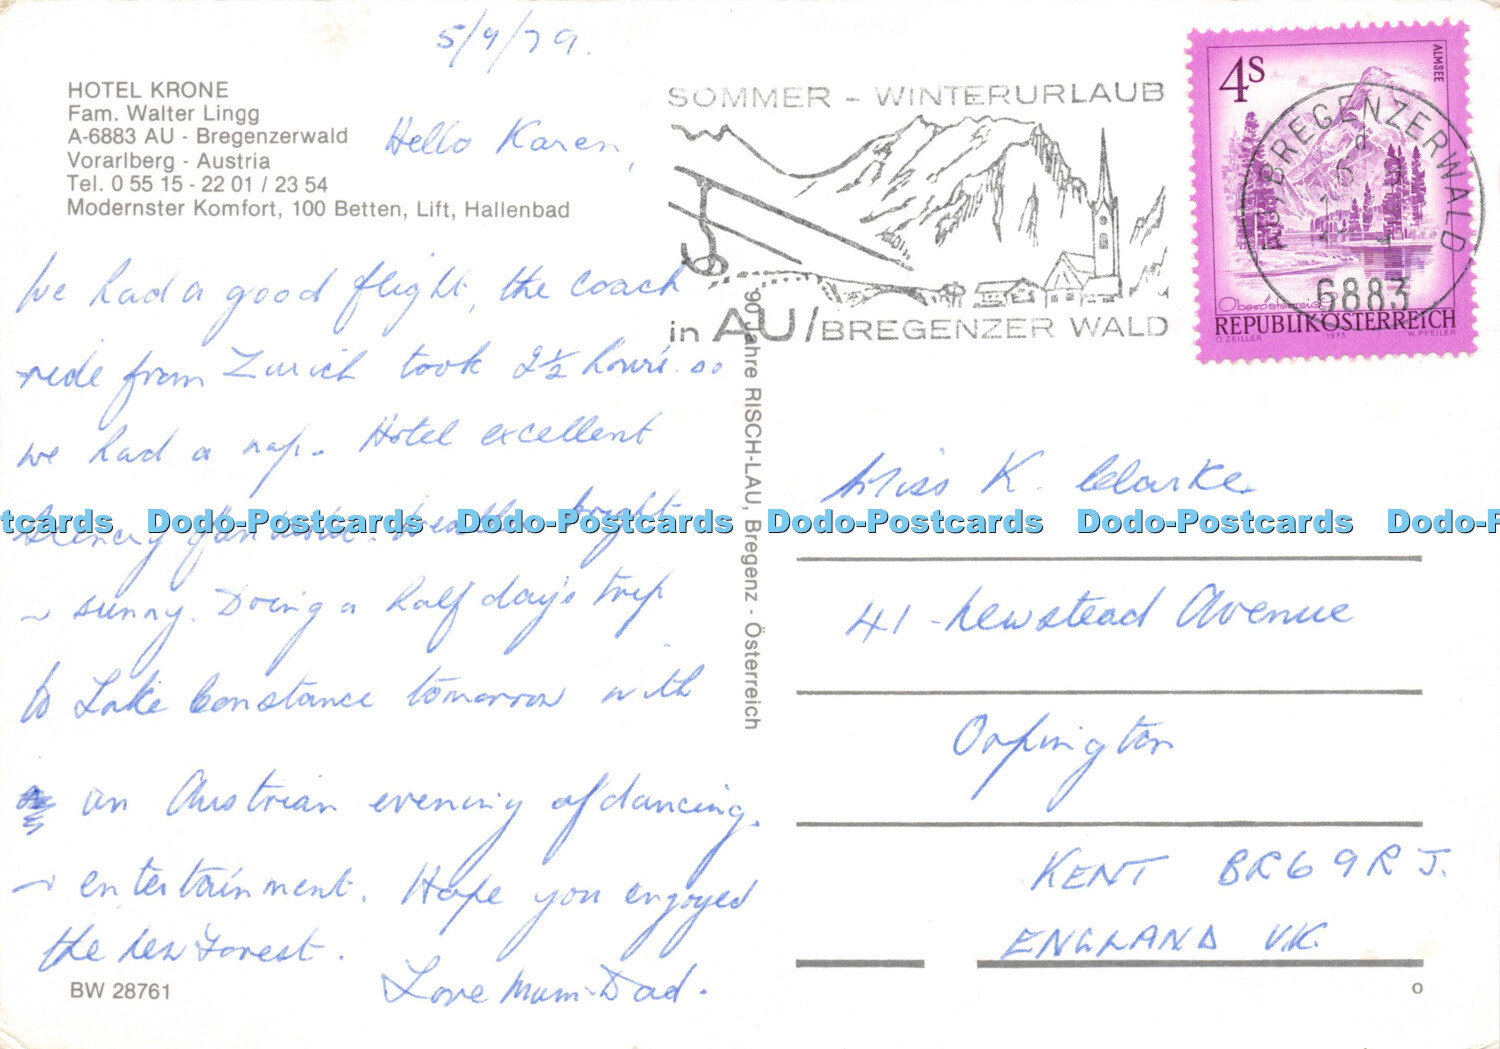 5/9/79.
HOTEL KRONE
Fam. Walter Lingg
A-6883 AU - Bregenzerwald
Vorarlberg - Austria
Tel. 0 55 15 - 22 01 / 23 54
Modernster Komfort, 100 Betten, Lift, Hallenbad
Hello Karen,
We had a good flight, the coach
ride from Zurich took 2½ hours. so
we had a nap. Hotel excellent
Scenery fantastic. Weather bright
~ sunny. Doing a half day's trip
to Lake Constance tomorrow with
an Austrian evening of dancing.
~ entertainment. Hope you enjoyed
the New Forest.
Love Mum Dad.
BW 28761
SOMMER - WINTERURLAUB
in AU/BREGENZER WALD
4S
ALMSEE
Oberösterreich
REPUBLIK ÖSTERREICH
O. ZEILLER 1973 W. PFEILER
BREGENZERWALD
6883
90 Jahre RISCH-LAU, Bregenz - Österreich
Miss K. Clarke
41 Newstead Avenue
Orpington
KENT BR6 9RJ.
ENGLAND UK.
o
tcards Dodo-Postcards Dodo-Postcards Dodo-Postcards Dodo-Postcards Dodo-P